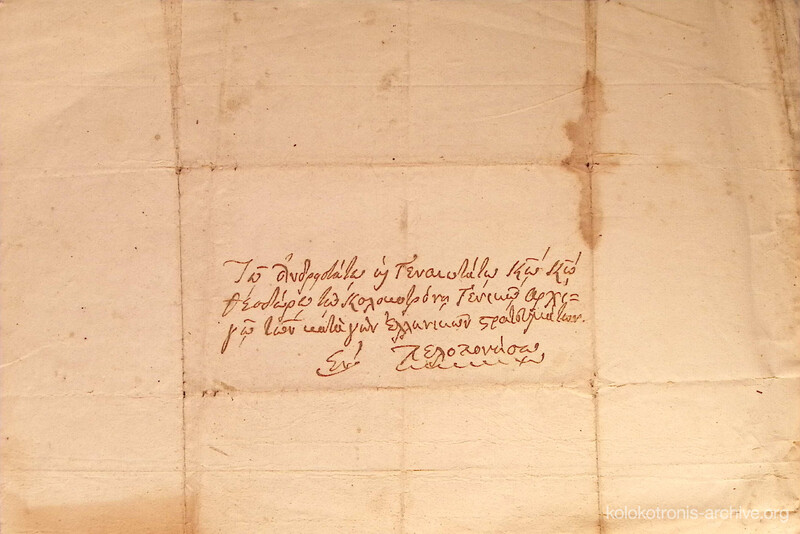 Τῶ ἀνδρειοτάτω ϗ Γεναιοτάτω Κῶ Κῶ
Θεοδώρω τῶ Κολοκοτρόνη Γενικῶ Ἀρχι=
γῶ τῶν κατὰ γὴν ἑλλανικῶν ϛρατευμάτων.
Εἰς Πελοπονάσω
kolokotronis-archive.org